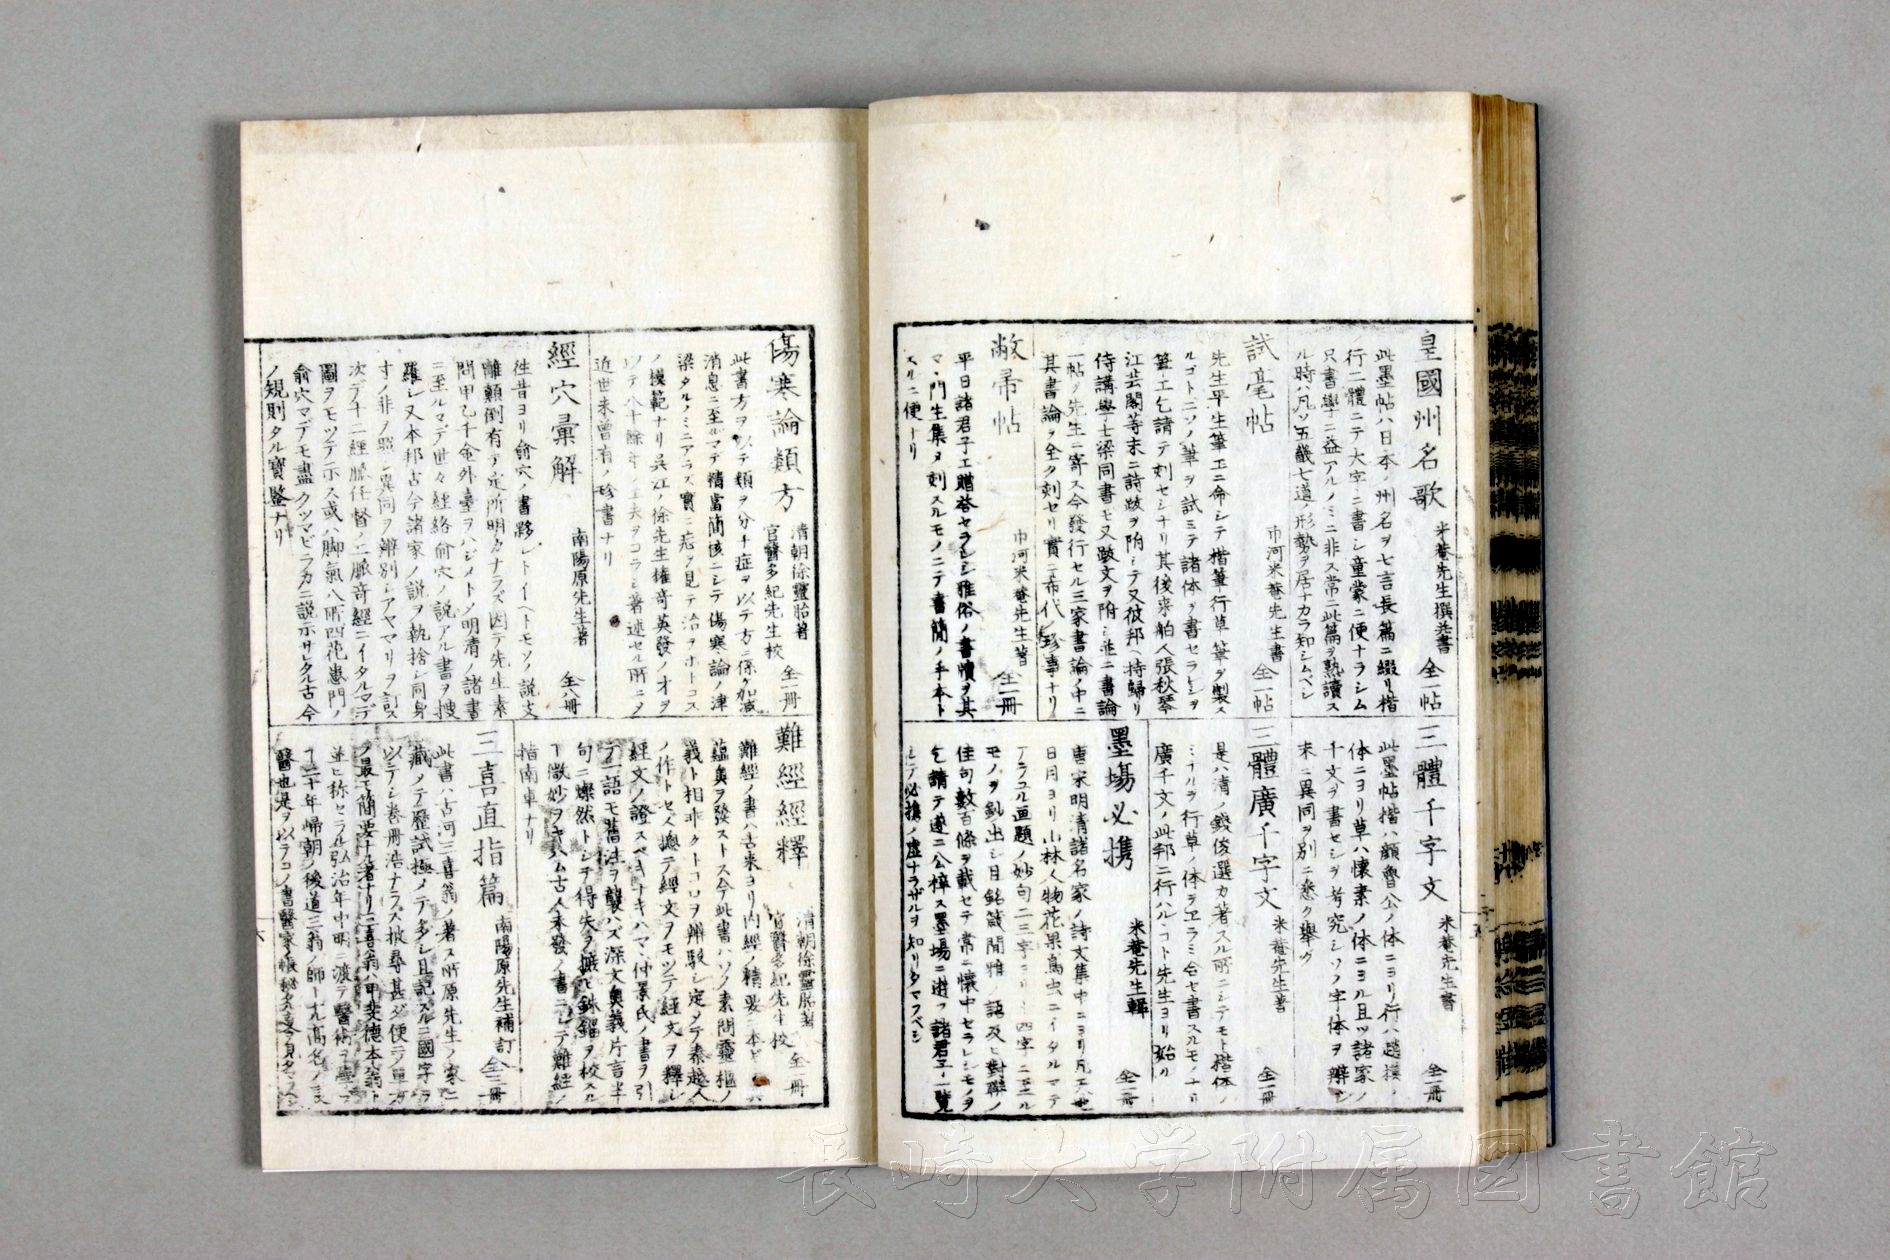 皇國州名歌 米菴先生撰并書 全一帖
此墨帖ハ日本ノ州名ヲ七言長篇ニ綴リ楷
行二體ニテ大字ニ書シ童蒙ニ便ナラシム
只書學ニ益アルノミニ非ス常ニ此篇ヲ熟讀ス
ル時ハ凡ソ五畿七道ノ形勢ヲ居ナカラ知シムベシ
試毫帖 市河米菴先生書 全一帖
先生平生筆工ニ命シテ楷筆行草ノ筆ヲ製ス
ルゴトニソノ筆ヲ試ミテ諸体ヲ書セラレシヲ
筆工乞請テ刻セシナリ其後來舶人張秋琴
江芸閣等末ニ詩跋ヲ附シテ又彼邦ヘ持歸リ
侍講學士梁同書モ又跋文ヲ附シ並ニ書論
一帖ヲ先生ニ寄ス今發行セル三家書論ノ中ニ
其書論ヲ全ク刻セリ實ニ希代ノ珍事ナリ
敝帚帖 市河米菴先生著 全一冊
平日諸君子エ贈答セラレシ雅俗ノ書牘ヲ其
マヽ門生集メ刻スルモノニテ書簡ノ手本ト
スルニ便ナリ
三體千字文 米菴先生書 全一冊
此墨帖楷ハ顔魯公ノ体ニヨリ行ハ趙模ノ
体ニヨリ草ハ懐素ノ体ニヨル且ツ諸家ノ
千文ヲ書セシヲ考究シソノ字体ヲ辨シ
末ニ異同ヲ別ニ悉ク舉グ
三體廣千字文 米菴先生著 全一冊
是ハ清ノ錢俊選カ著スル所ニシテモト楷体ノ
ミナルヲ行草ノ体ヲヱラミ合セ書スルモノナリ
廣千文ノ此邦ニ行ハルヽコト先生ヨリ始ル
墨場必携 米菴先生輯 全一冊
唐宋明清諸名家ノ詩文集中ニヨリ凡天地
日月ヨリ山林人物花果鳥虫ニイタルマテ
アラユル画題ノ妙句二三字ヨリ四字ニ至ル
モノヲ鈔出シ且銘箴閒雅ノ語及ヒ對聯ノ
佳句數百條ヲ載セテ常ニ懷中セラレシモノヲ
乞請テ遂ニ公梓ス墨場ニ遊フ諸君子一覧
シテ必携ノ虚ナラザルヲ知リタマフベシ
傷寒論類方 清朝徐靈胎著 官醫多紀先生校 全一冊
此書方ヲ以テ類ヲ分チ症ヲ以テ方ニ係ケ加減
消息ニ至ルマテ精富簡該ニシテ傷寒論ノ津
梁タルノミニアラス實ニ疾ヲ見テ治ヲホトコス
ノ模範ナリ呉江ノ徐先生權奇英發ノ才ヲ
以テ八十餘年ノ工夫ヲコラシ著述セル所ニシテ
近世未曾有ノ珍書ナリ
經穴彙解 南陽原先生著 全八冊
徃昔ヨリ俞穴ノ書夥シトイヘトモソノ説支
離顛倒有テ定所明カナラズ因テ先生素
問甲乙千金外臺ヲハジメトシ明清ノ諸書
ニ至ルマデ世々經絡俞穴ノ説アル書ヲ捜
羅シ又本邦古今諸家ノ説ヲ執捨シ同身
寸ノ非ノ照シ異同ヲ辨別シアヤマリヲ訂ス
次デ十二經脈任督ノ二脈奇經ニイタルマデ
圖ヲモツテ示ス或ハ脚氣八所四花患門ノ
俞穴マデモ盡クツマビラカニ説示サレタル古今
ノ規則タル寶鑒ナリ
難經經釋 清朝徐靈胎著 官醫多紀先生校 全一冊
難經ノ書ハ古来ヨリ内經ノ精要ニ本ヒ
蘊奥ヲ發ストス今此書ハソノ素問靈樞ノ
義ト相非クトコロヲ辨駁シ定メテ秦越人
ノ作トセス總テ經文ヲモツテ經文ヲ釋シ
經文ノ證スベキナキハマヽ仲景氏ノ書ヲ引
テ一語モ舊注ヲ襲ハズ深文奥義片言半
句ニ燦然トシテ得失ヲ攄ヒ銖錙ヲ校スル
丁微妙ヲキハム古人未發ノ書ニシテ難經ノ
指南車ナリ
三喜直指篇 南陽原先生補訂 全三冊
此書ハ古河三喜翁ノ著ス所原先生ノ家ニ
藏メテ歴試極メテ多シ且記スルニ國字ヲ
以テシ巻冊浩ナラス披尋甚ダ便ニシテ單方
ノ最モ簡要ナル者ナリ三喜翁ハ甲斐德本翁ト
並ヒ称セラル弘治年中明ニ渡テ醫術ヲ學フ
丁二十年歸朝ノ後道三翁ノ師トナル高名ノ
醫也是ヲ以テコノ書醫家ノ
長崎大学附属図書館